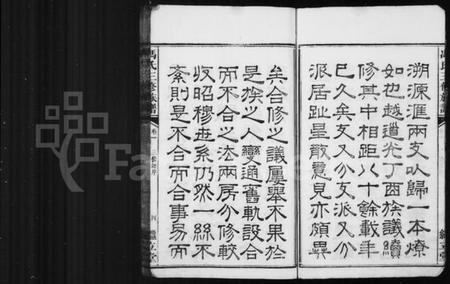 溯源滙兩支以歸一本燎
如也越道光丁酉族議續
修其中相距八十餘載年
已久矣支又分支派又分
派居趾星散意見亦頗異
矣合修之議屢舉不果於
是族之人變通舊軌設合
而不合之法兩房分修較
收昭穆世系仍然一絲不
紊則是不合而合事易而
馮氏三修族譜